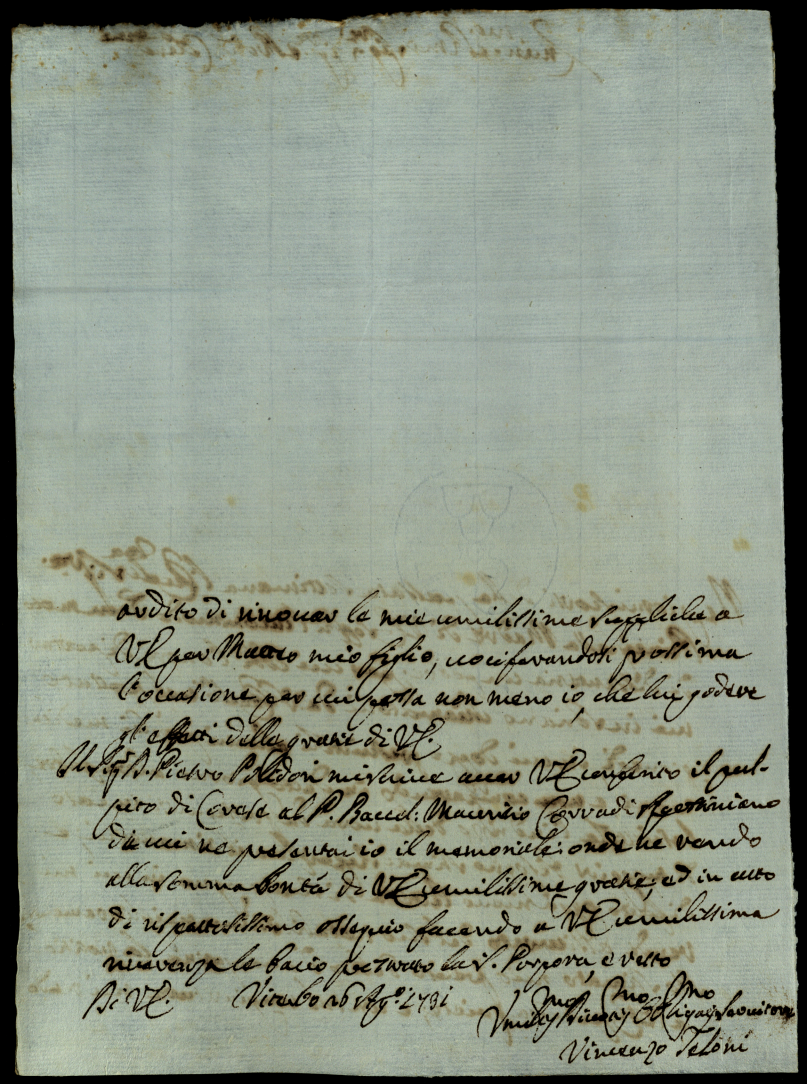 ardito di rinovar le mie umilissime suppliche a
VE per Matteo mio figlio, vociferandosi prossima
l'occasione per cui possa non meno io, che lui godere
gl'effetti delle gratie di VE.
Il Sigr D. Pietro Polidori mi scrive aver VE conferito il pul-
pito di Covese al P. Baccel: Maurizio Corradi Agostiniano
di cui ne presentai io il memoriale: onde ne rendo
alla somma bontà di VE umilissime gratie, ed in atto
di rispettosissimo ossequio facendo a VE umilissima
riverenza le bacio prostrato la S. Porpora, e resto
Di VE. Viterbo 26 1731
Umilmo Divotmo Obligatmo Servitore
Vincenzo Feloni